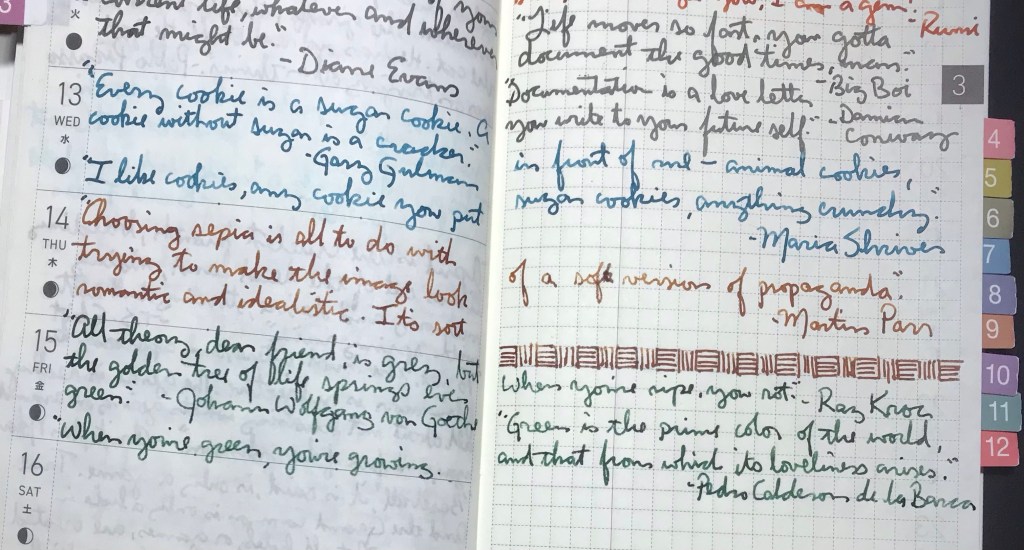 3
of you
content life, whatever and wherever
that might be."
- Diane Evans
火
13
WED
水
"Every cookie is a sugar cookie. A
cookie without sugar is a cracker."
- Gary Gulman
"I like cookies, any cookie you put
14
THU
木
"Choosing sepia is all to do with
trying to make the image look
romantic and idealistic. It's sort
15
FRI
金
"All theory, dear friend, is grey, but
the golden tree of life springs ever
green." - Johann Wolfgang von Goethe
"When you're green, you're growing.
16
SAT
土
a gem."
- Rumi
"Life moves so fast, you gotta
document the good times, man."
- Big Boi
"Documentation is a love letter
you write to your future self." - Damian
Conway
in front of me - animal cookies,
sugar cookies, anything crunchy."
- Maria Shriver
of a soft version of propaganda."
- Martin Parr
When you're ripe, you rot." - Ray Kroc
"Green is the prime color of the world,
and that from which its loveliness arises."
- Pedro Calderon de la Barca
3
4
5
6
7
8
9
10
11
12